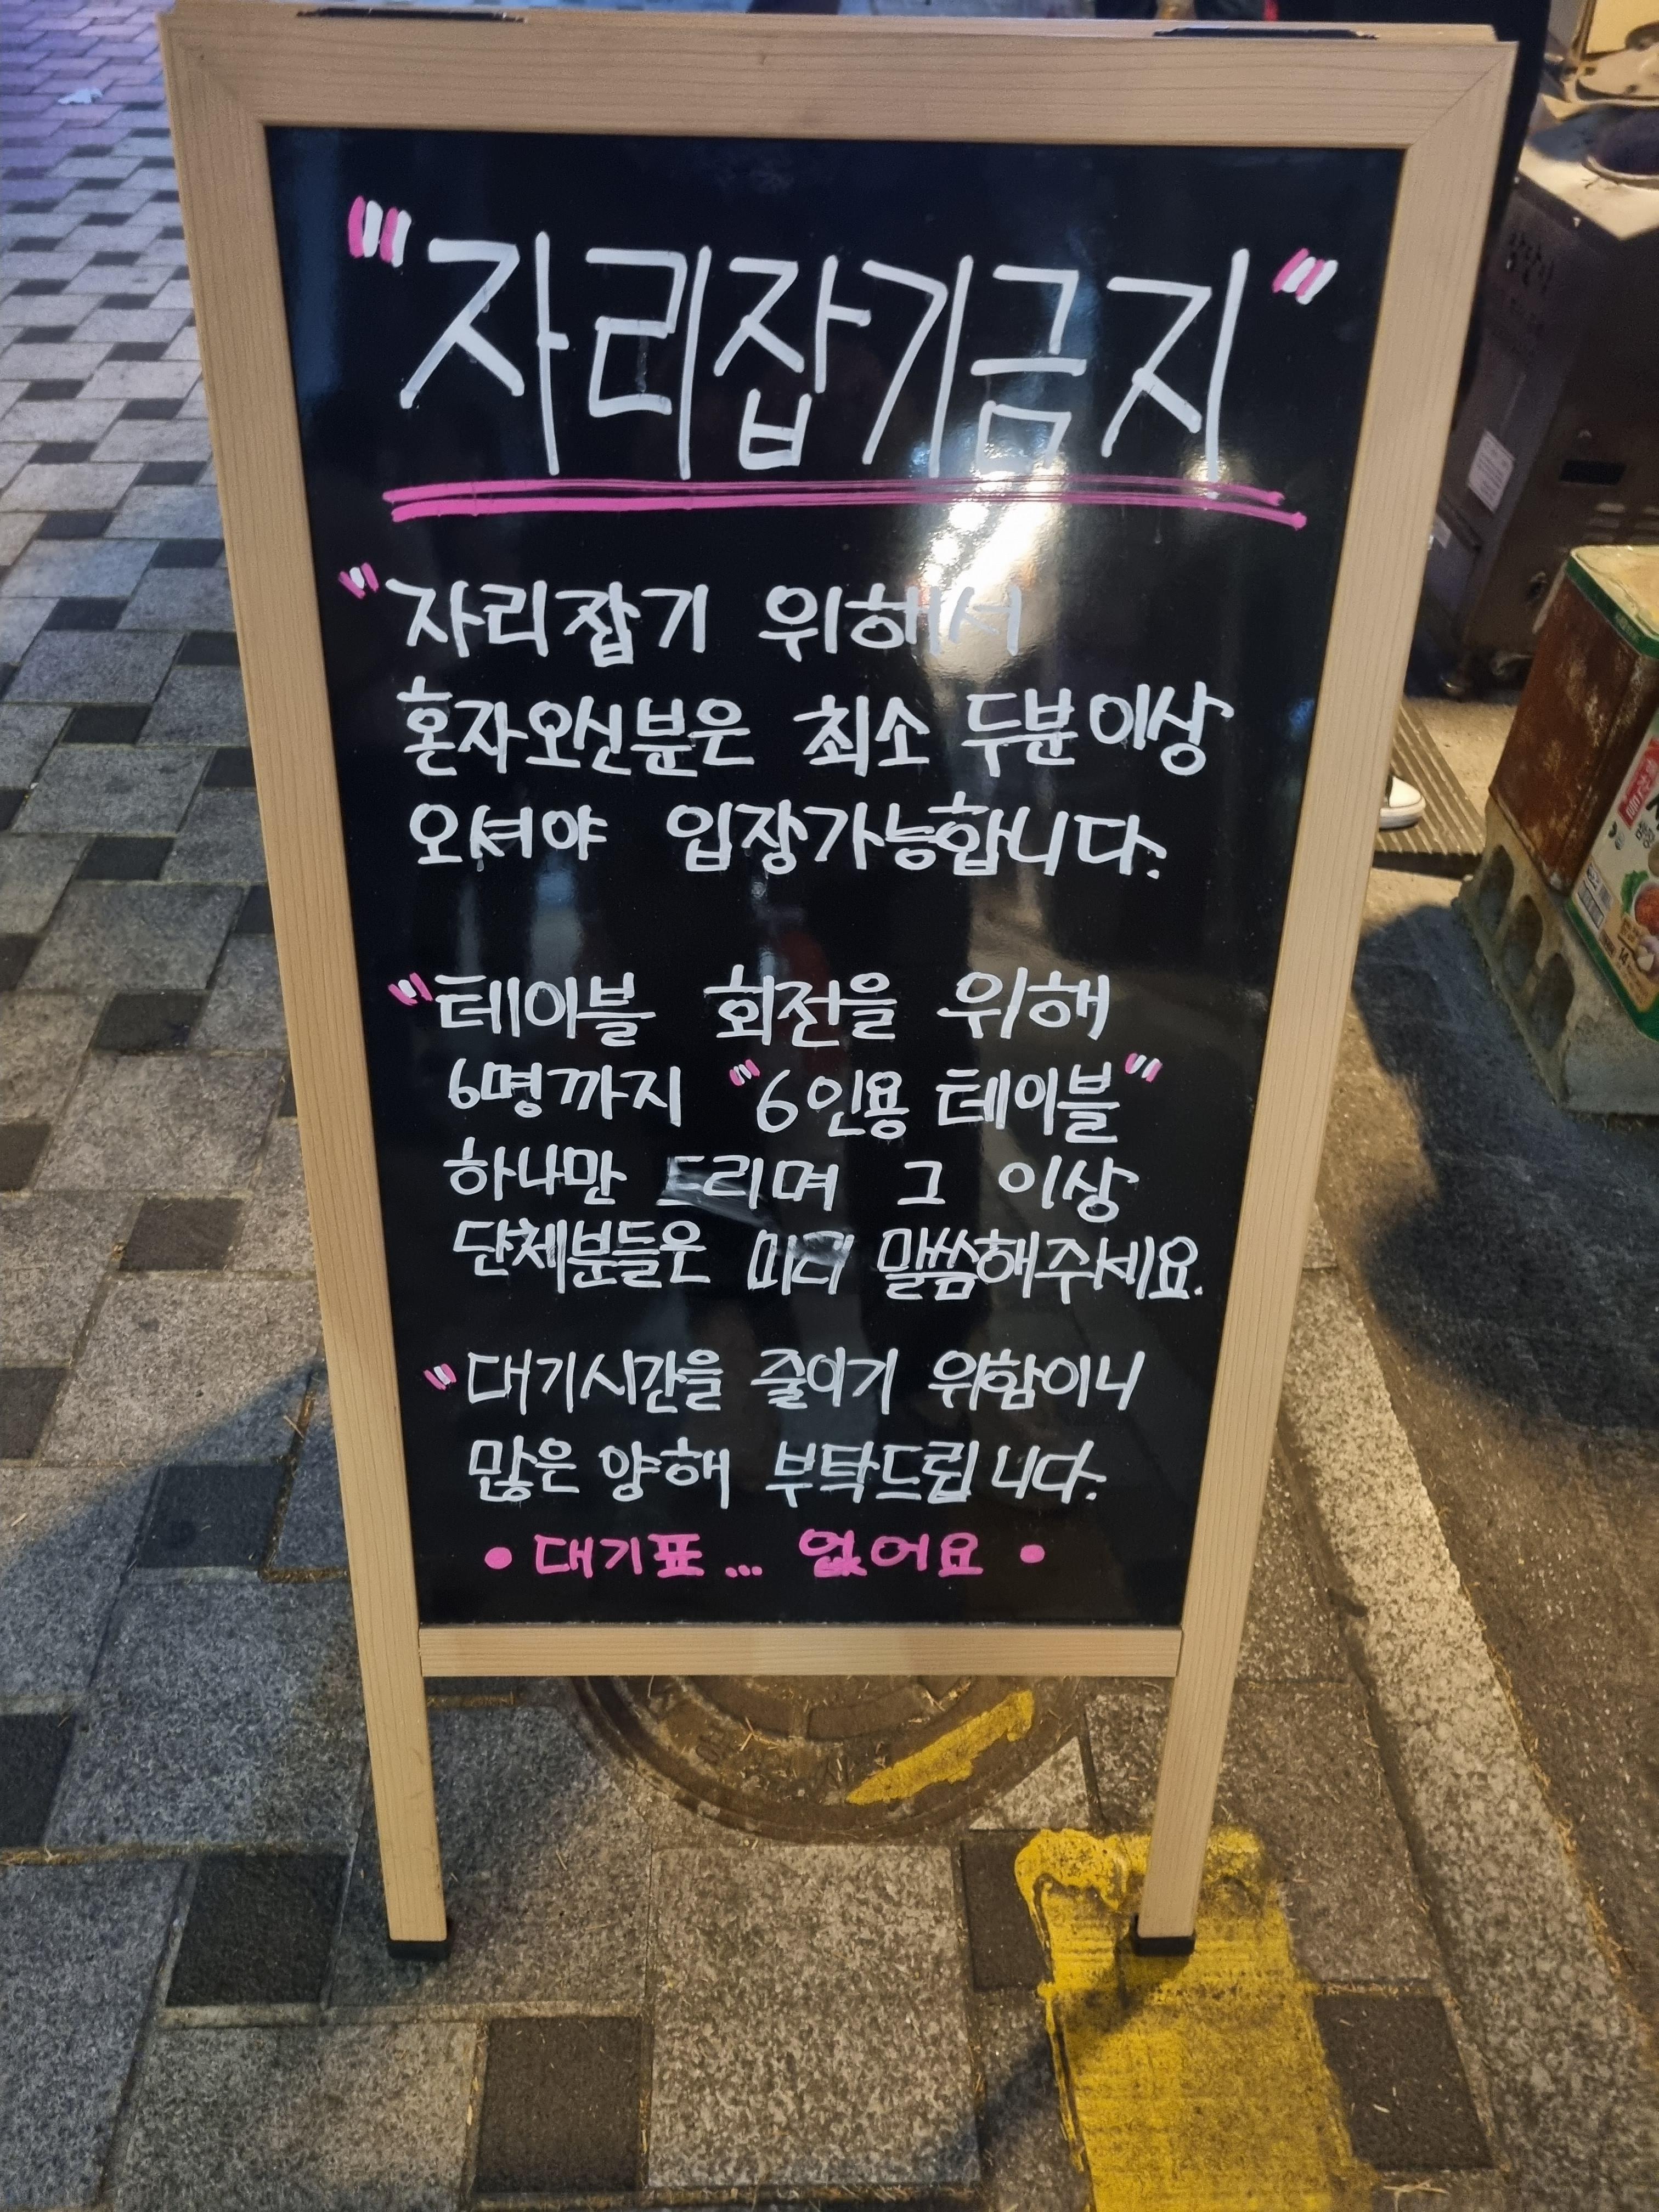 "자리잡기금지"
"자리잡기 위해서
혼자오신분은 최소 두분이상
오셔야 입장가능합니다.
"테이블 회전을 위해
6명까지 "6인용 테이블"
하나만 드리며 그 이상
단체분들은 미리 말씀해주세요.
"대기시간을 줄이기 위함이니
많은 양해 부탁드립니다.
• 대기표... 없어요 •